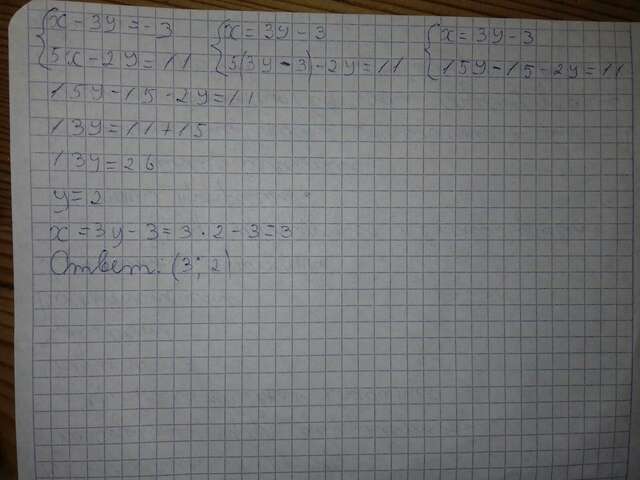 {x - 3y = -3 {x = 3y - 3 {x = 3y - 3
{5x - 2y = 11 {5(3y - 3) - 2y = 11 {15y - 15 - 2y = 11
15y - 15 - 2y = 11
13y = 11 + 15
13y = 26
y = 2
x = 3y - 3 = 3 · 2 - 3 = 3
Ответ: (3; 2)